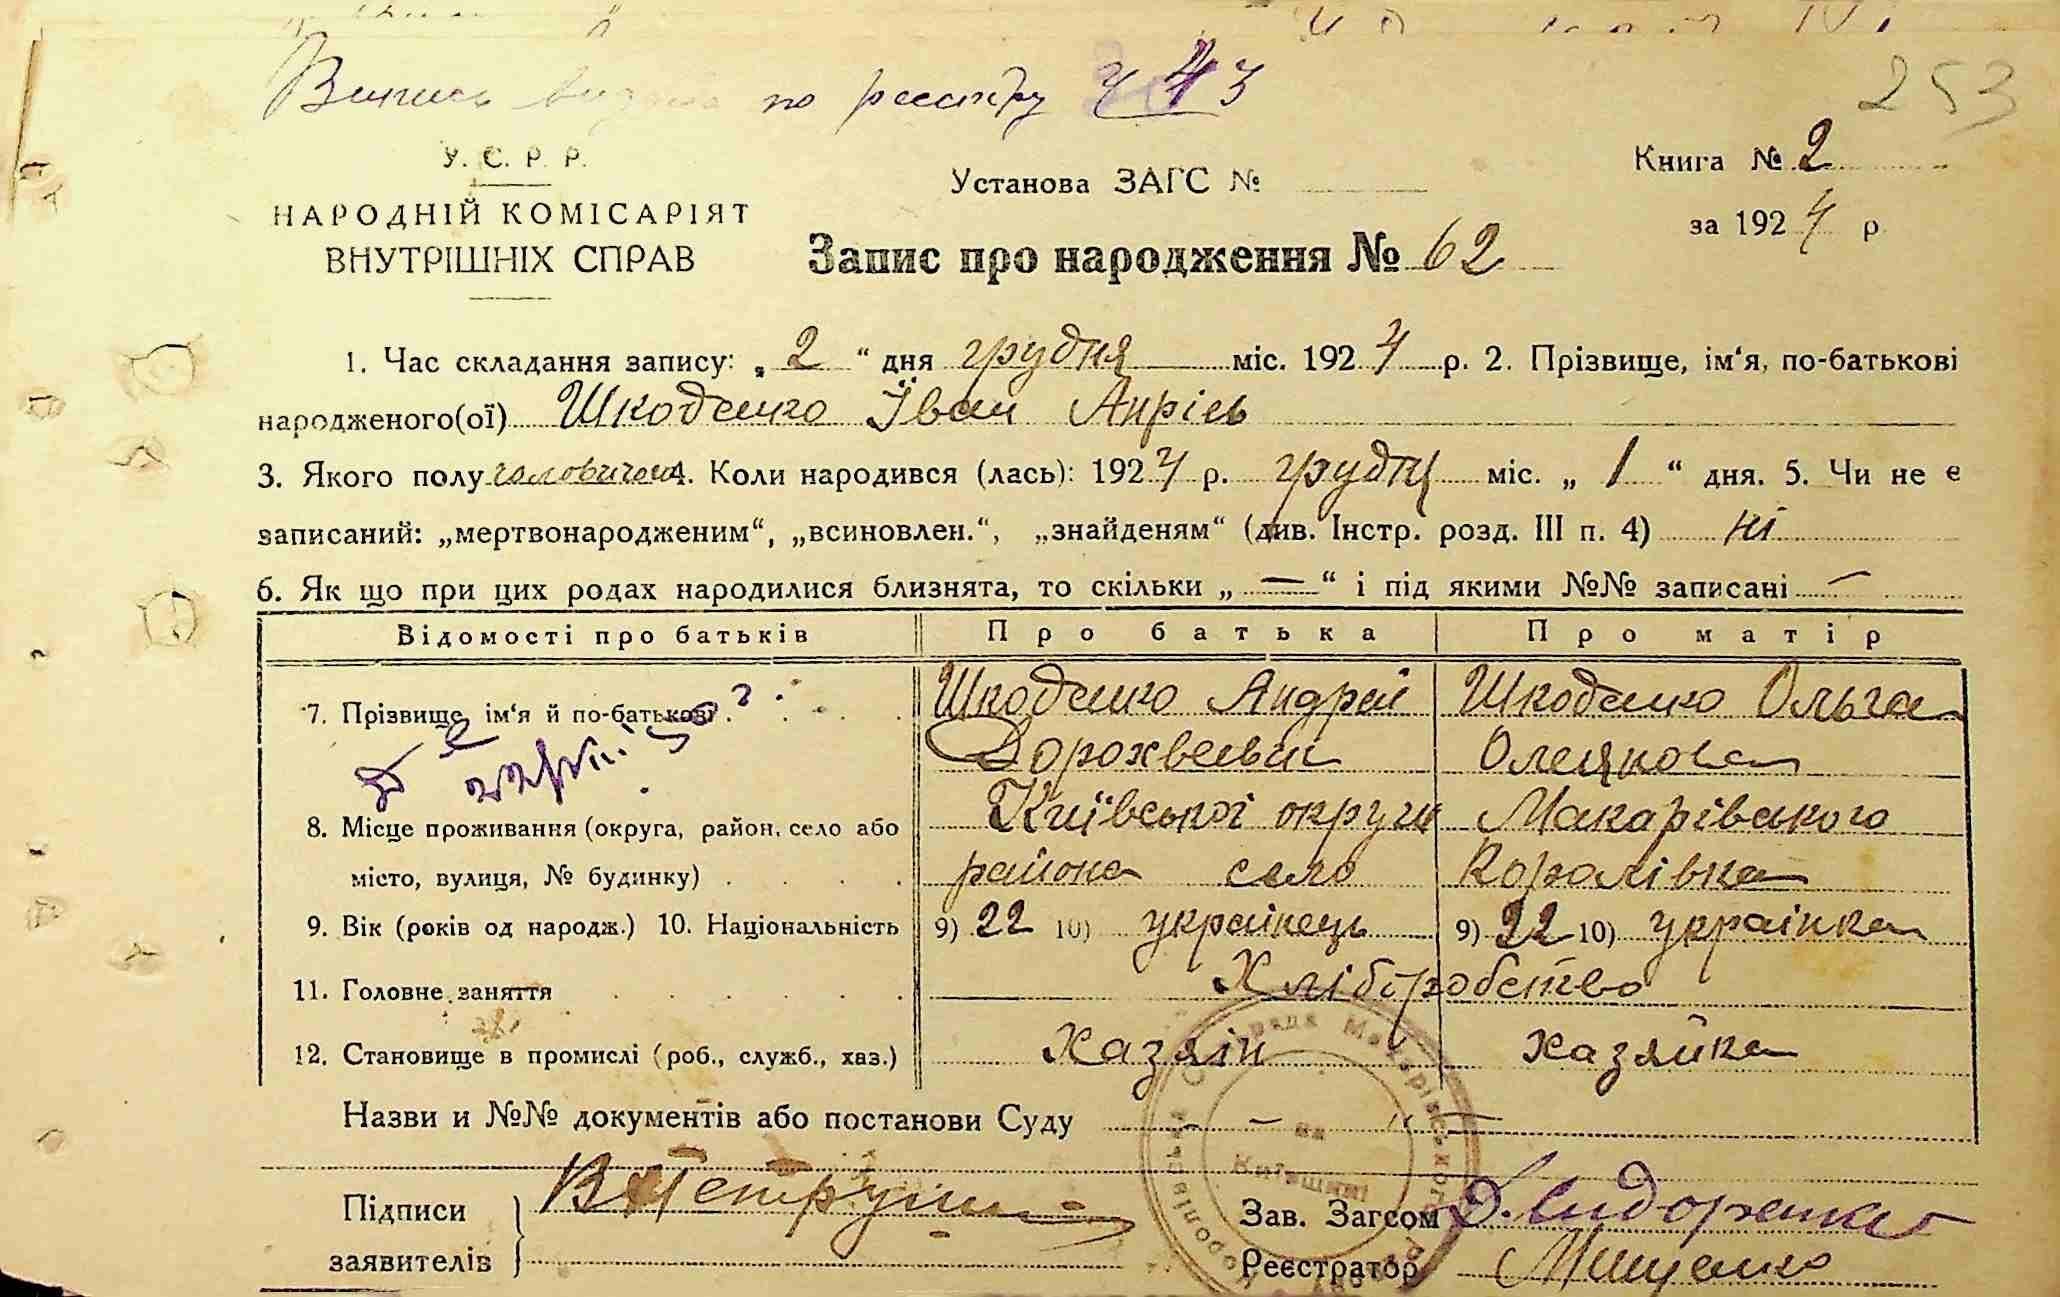 Випись видана по реєстру ч 43
253
У. С. Р. Р.
НАРОДНІЙ КОМІСАРІЯТ
ВНУТРІШНІХ СПРАВ
Установа ЗАГС №
Книга № 2
за 1924 р
Запис про народження № 62
1. Час складання запису: „ 2 “ дня грудня міс. 1924 р. 2. Прізвище, ім‘я, по-батькові
народженого(ої) Шкоденко Іван
3. Якого полу 4. Коли народився (лась): 1924 р. грудня міс. „ 1 “ дня. 5. Чи не є
записаний: „мертвонародженим“, „всиновлен.“, „знайденям“ (див. Інстр. розд. III п. 4) ні
6. Як що при цих родах народилися близнята, то скільки „ — “ і під якими №№ записані —
Відомості про батьків Про батька Про матір
7. Прізвище ім‘я й по-батькові Шкоденко Андрей Шкоденко Ольга
8. Місце проживання (округа, район, село або Київської округи Макарівського
місто, вулиця, № будинку) района село Королівка
9. Вік (років од народж.) 10. Національність 9) 22 10) українець 9) 22 10) українка
11. Головне заняття Хліборобство
12. Становище в промислі (роб., служб., хаз.) Хазяїн хазяйка
Назви и №№ документів або постанови Суду — „ —
Підписи
заявителів
Зав. Загсом Сидоренко
Реєстратор Мищенко